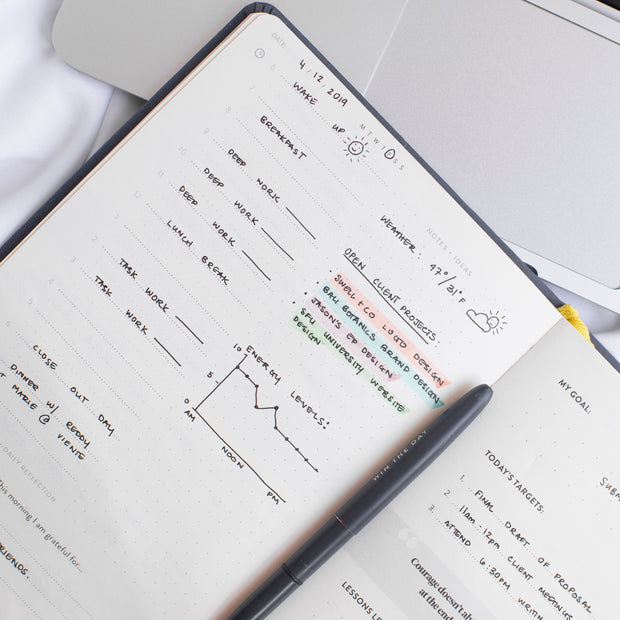 DATE:
4/12/2019
M T W T S S
6 WAKE UP
7
8 BREAKFAST
9 DEEP WORK
10 DEEP WORK
11 DEEP WORK
12 LUNCH BREAK
1
2 TASK WORK
3 TASK WORK
4
5 CLOSE OUT DAY
6 DINNER W/ REDDY
MARIE @ VICENTE
DAILY REFLECTION
This morning I am grateful for...
FRIENDS.
NOTES + IDEAS
WEATHER: 47°/31°F
OPEN CLIENT PROJECTS:
SWELL + CO LOGO DESIGN
BAY BOTANICS BRAND DESIGN
JASON'S EP DESIGN
SFU UNIVERSITY WEBSITE
DESIGN
ENERGY LEVELS:
10
5
0
AM
NOON
PM
WIN THE DAY
MY GOAL:
TODAY'S TARGETS:
1. FINAL DRAFT OF PROPOSAL
2. 11AM-12PM CLIENT MEETINGS
3. ATTEND 6:30PM
Courage doesn't
at the end
LESSONS